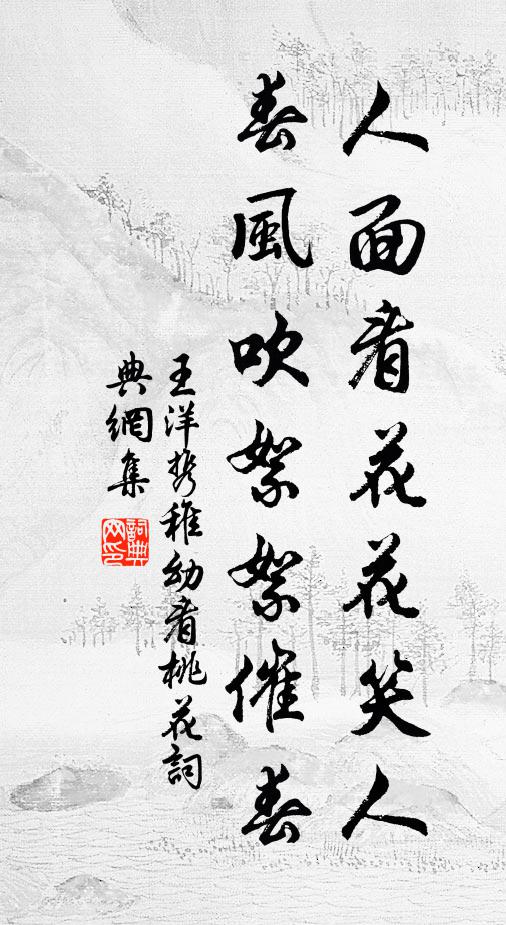 人面看花花笑人
春風吹絮絮催春
王洋携稚幼看桃花詞
典網集
詞典网印